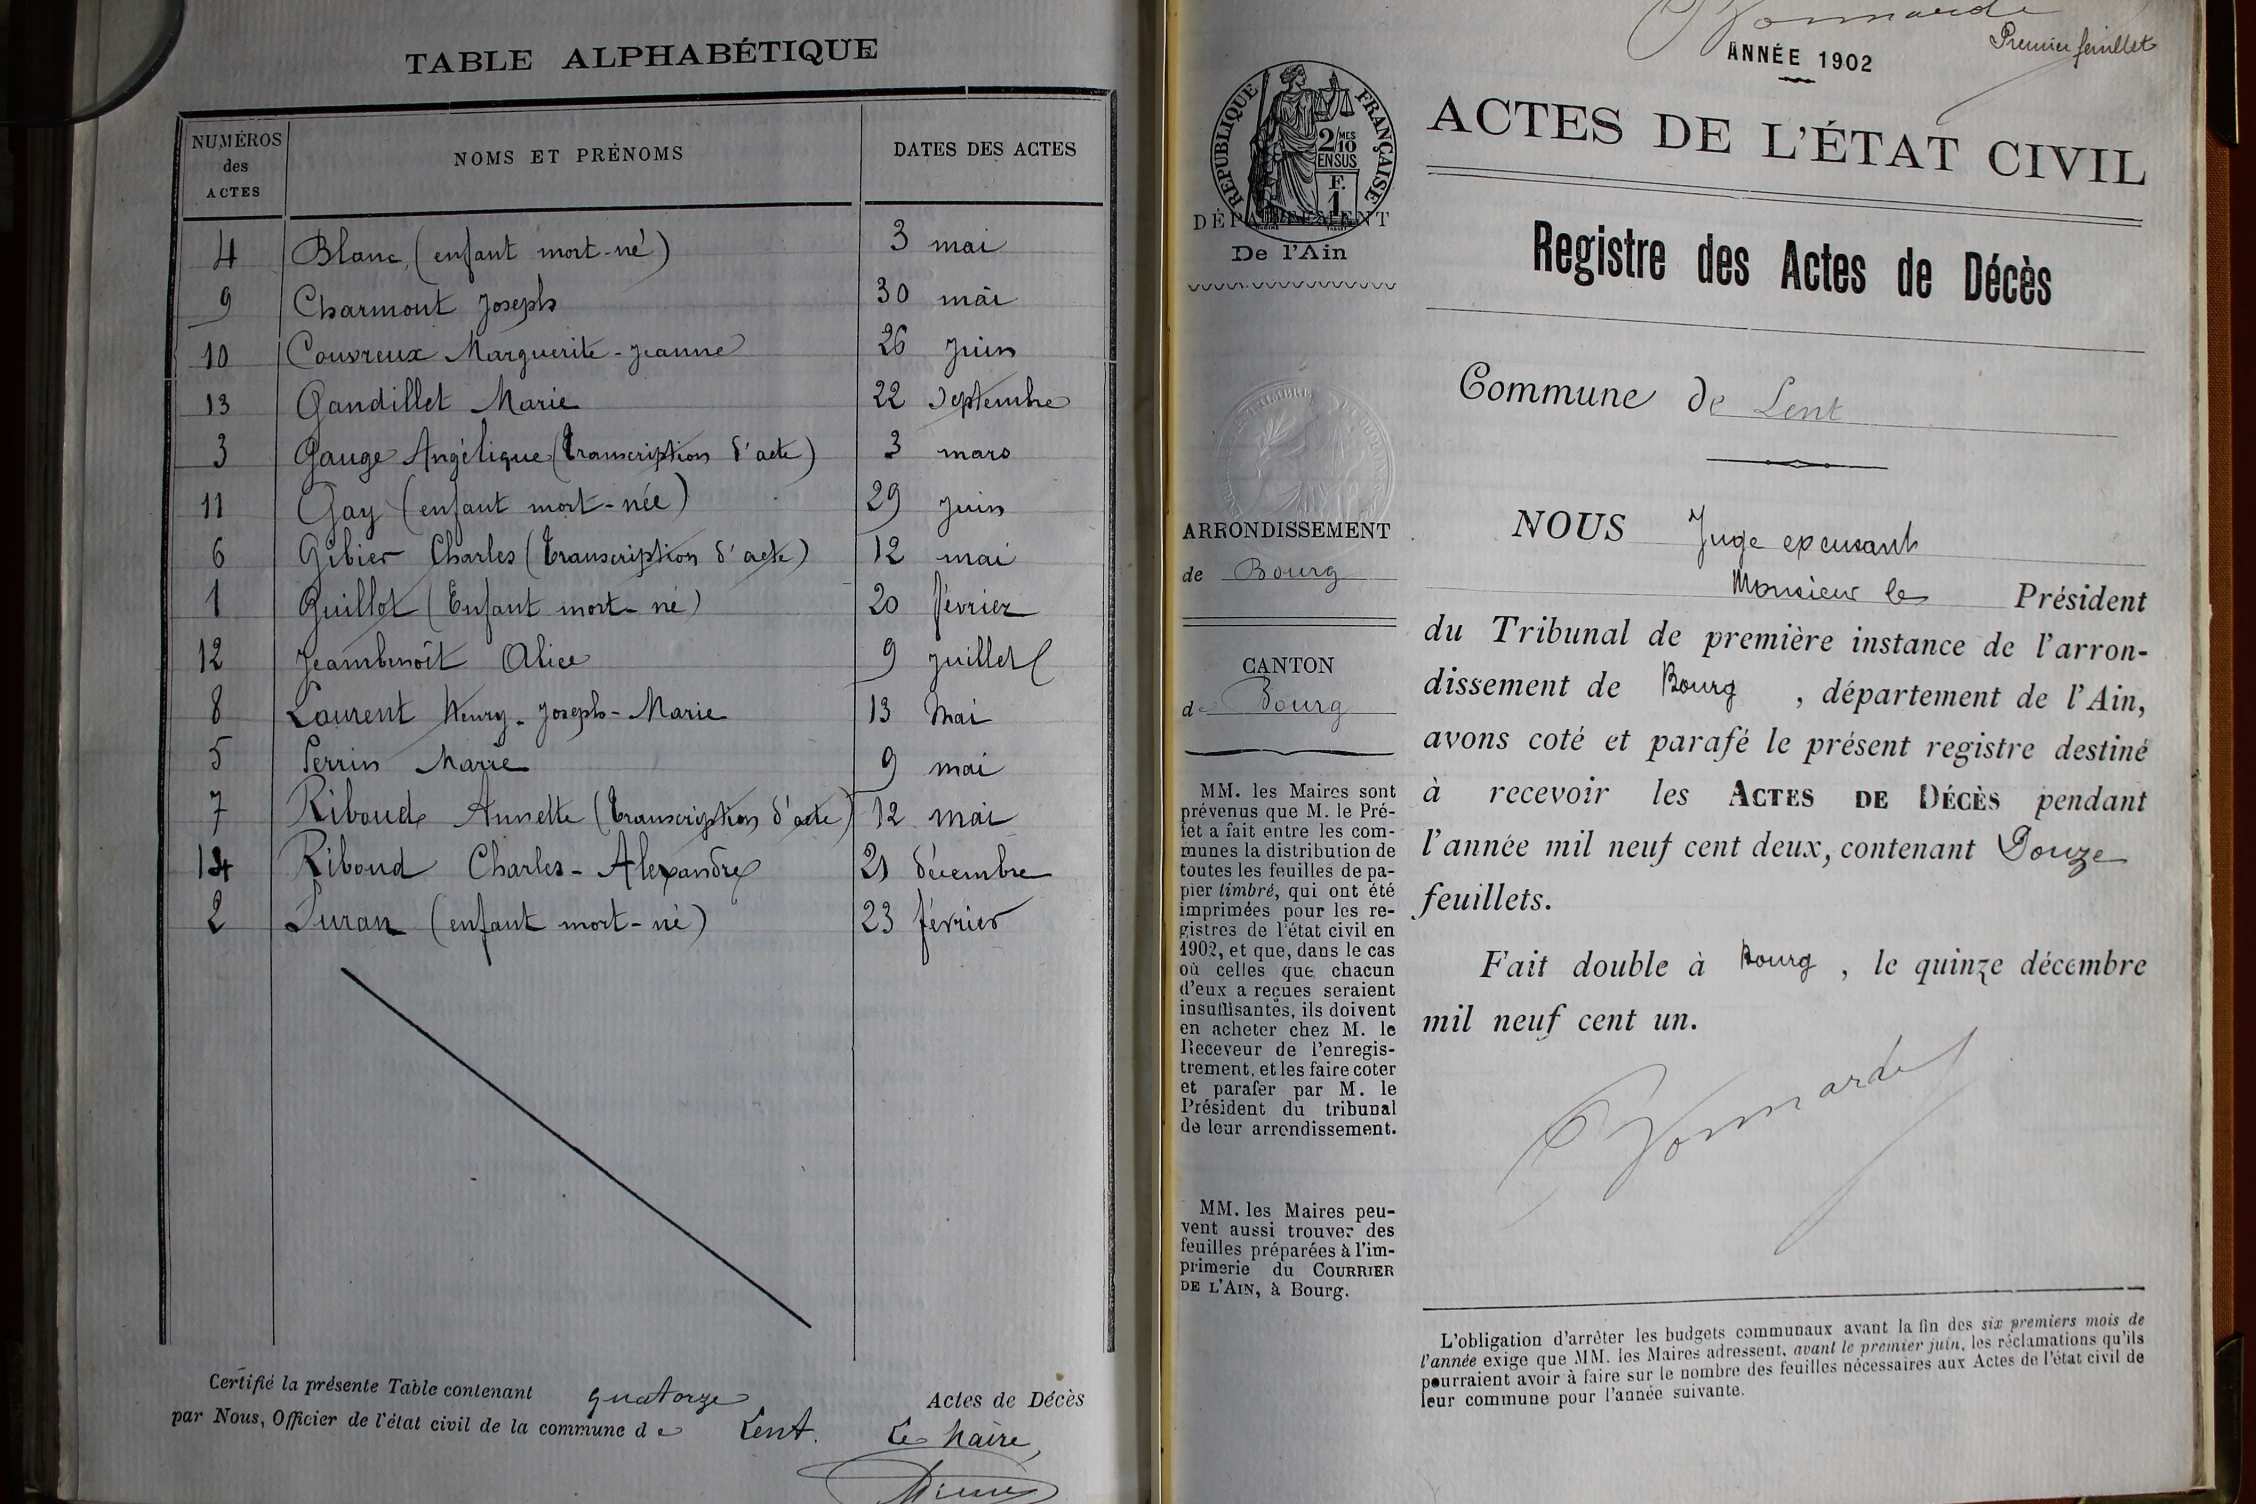 TABLE ALPHABÉTIQUE
NUMÉROS des ACTES
NOMS ET PRÉNOMS
DATES DES ACTES
4 Blanc (enfant mort-né) 3 mai
9 Charmont Joseph 30 mai
10 Couvreux Marguerite-Jeanne 26 juin
13 Gandillet Marie 22 Septembre
3 Gauge Angélique (transcription d'acte) 3 mars
11 Gay (enfant mort-née) 29 juin
6 Gibier Charles (transcription d'acte) 12 mai
1 Guillot (Enfant mort-né) 20 février
12 Jeambenoît Alice 9 juillet
8 Laurent Henry-Joseph-Marie 13 Mai
5 Perrin Marie 9 mai
7 Riboud Annette (transcription d'acte) 12 mai
14 Riboud Charles-Alexandre 21 décembre
2 Turan (enfant mort-né) 23 février
Certifié la présente Table contenant quatorze Actes de Décès
par Nous, Officier de l'état civil de la commune de Lent.
Le Maire,
Premier feuillet
ANNÉE 1902
ACTES DE L'ÉTAT CIVIL
RÉPUBLIQUE FRANÇAISE
2/10 MES
EN SUS
F.
1
DÉPARTEMENT
De l'Ain
Registre des Actes de Décès
Commune de Lent
ARRONDISSEMENT
de Bourg
CANTON
de Bourg
MM. les Maires sont
prévenus que M. le Pré-
fet a fait entre les com-
munes la distribution de
toutes les feuilles de pa-
pier timbré, qui ont été
imprimées pour les re-
gistres de l'état civil en
1902, et que, dans le cas
où celles que chacun
d'eux a reçues seraient
insuffisantes, ils doivent
en acheter chez M. le
Receveur de l'enregis-
trement, et les faire coter
et parafer par M. le
Président du tribunal
de leur arrondissement.
MM. les Maires peu-
vent aussi trouver des
feuilles préparées à l'im-
primerie du COURRIER
DE L'AIN, à Bourg.
NOUS Juge excusant
Monsieur le Président
du Tribunal de première instance de l'arron-
dissement de Bourg, département de l'Ain,
avons coté et parafé le présent registre destiné
à recevoir les ACTES DE DÉCÈS pendant
l'année mil neuf cent deux, contenant Douze
feuillets.
Fait double à Bourg, le quinze décembre
mil neuf cent un.
L'obligation d'arrêter les budgets communaux avant la fin des six premiers mois de
l'année exige que MM. les Maires adressent, avant le premier juin, les réclamations qu'ils
pourraient avoir à faire sur le nombre des feuilles nécessaires aux Actes de l'état civil de
leur commune pour l'année suivante.